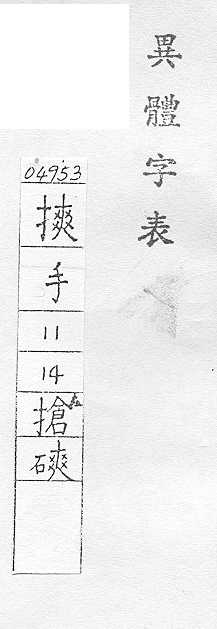 異體字表
04953
摤
手
11
14
搶
磢